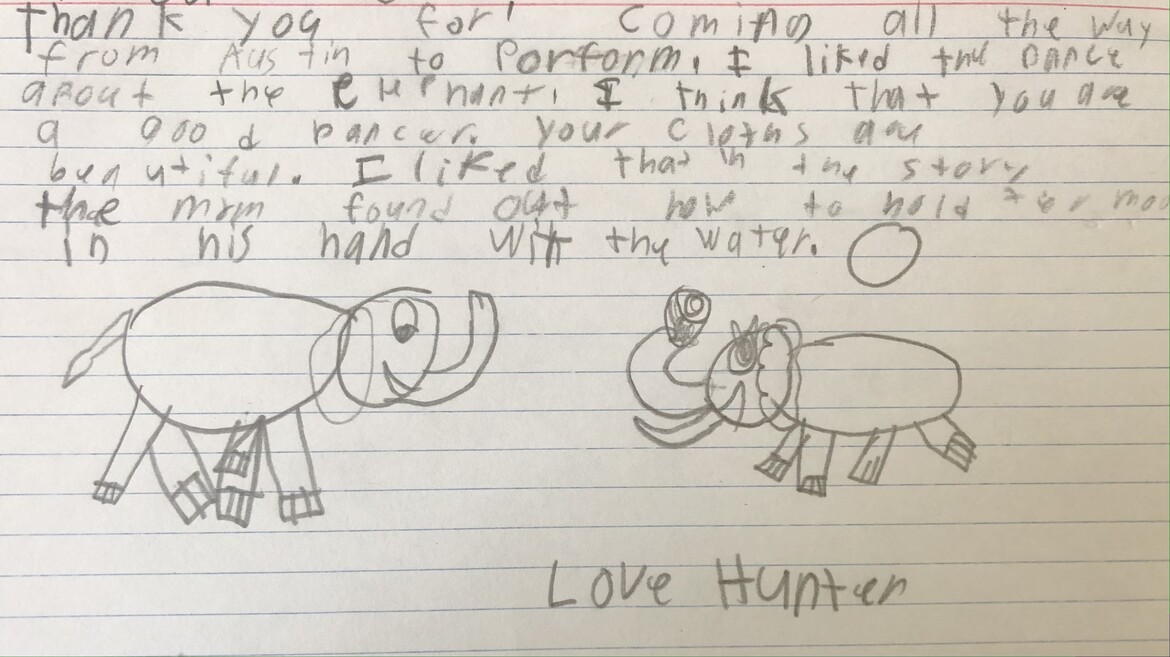 Thank you for coming all the way
from Austin to Porform. I liked the Dance
about the elephant. I think that you are
a good Dancer. your cloths are
beautiful. I liked that in the story
the mom found out how to hold
in his hand with the water.
Love Hunter